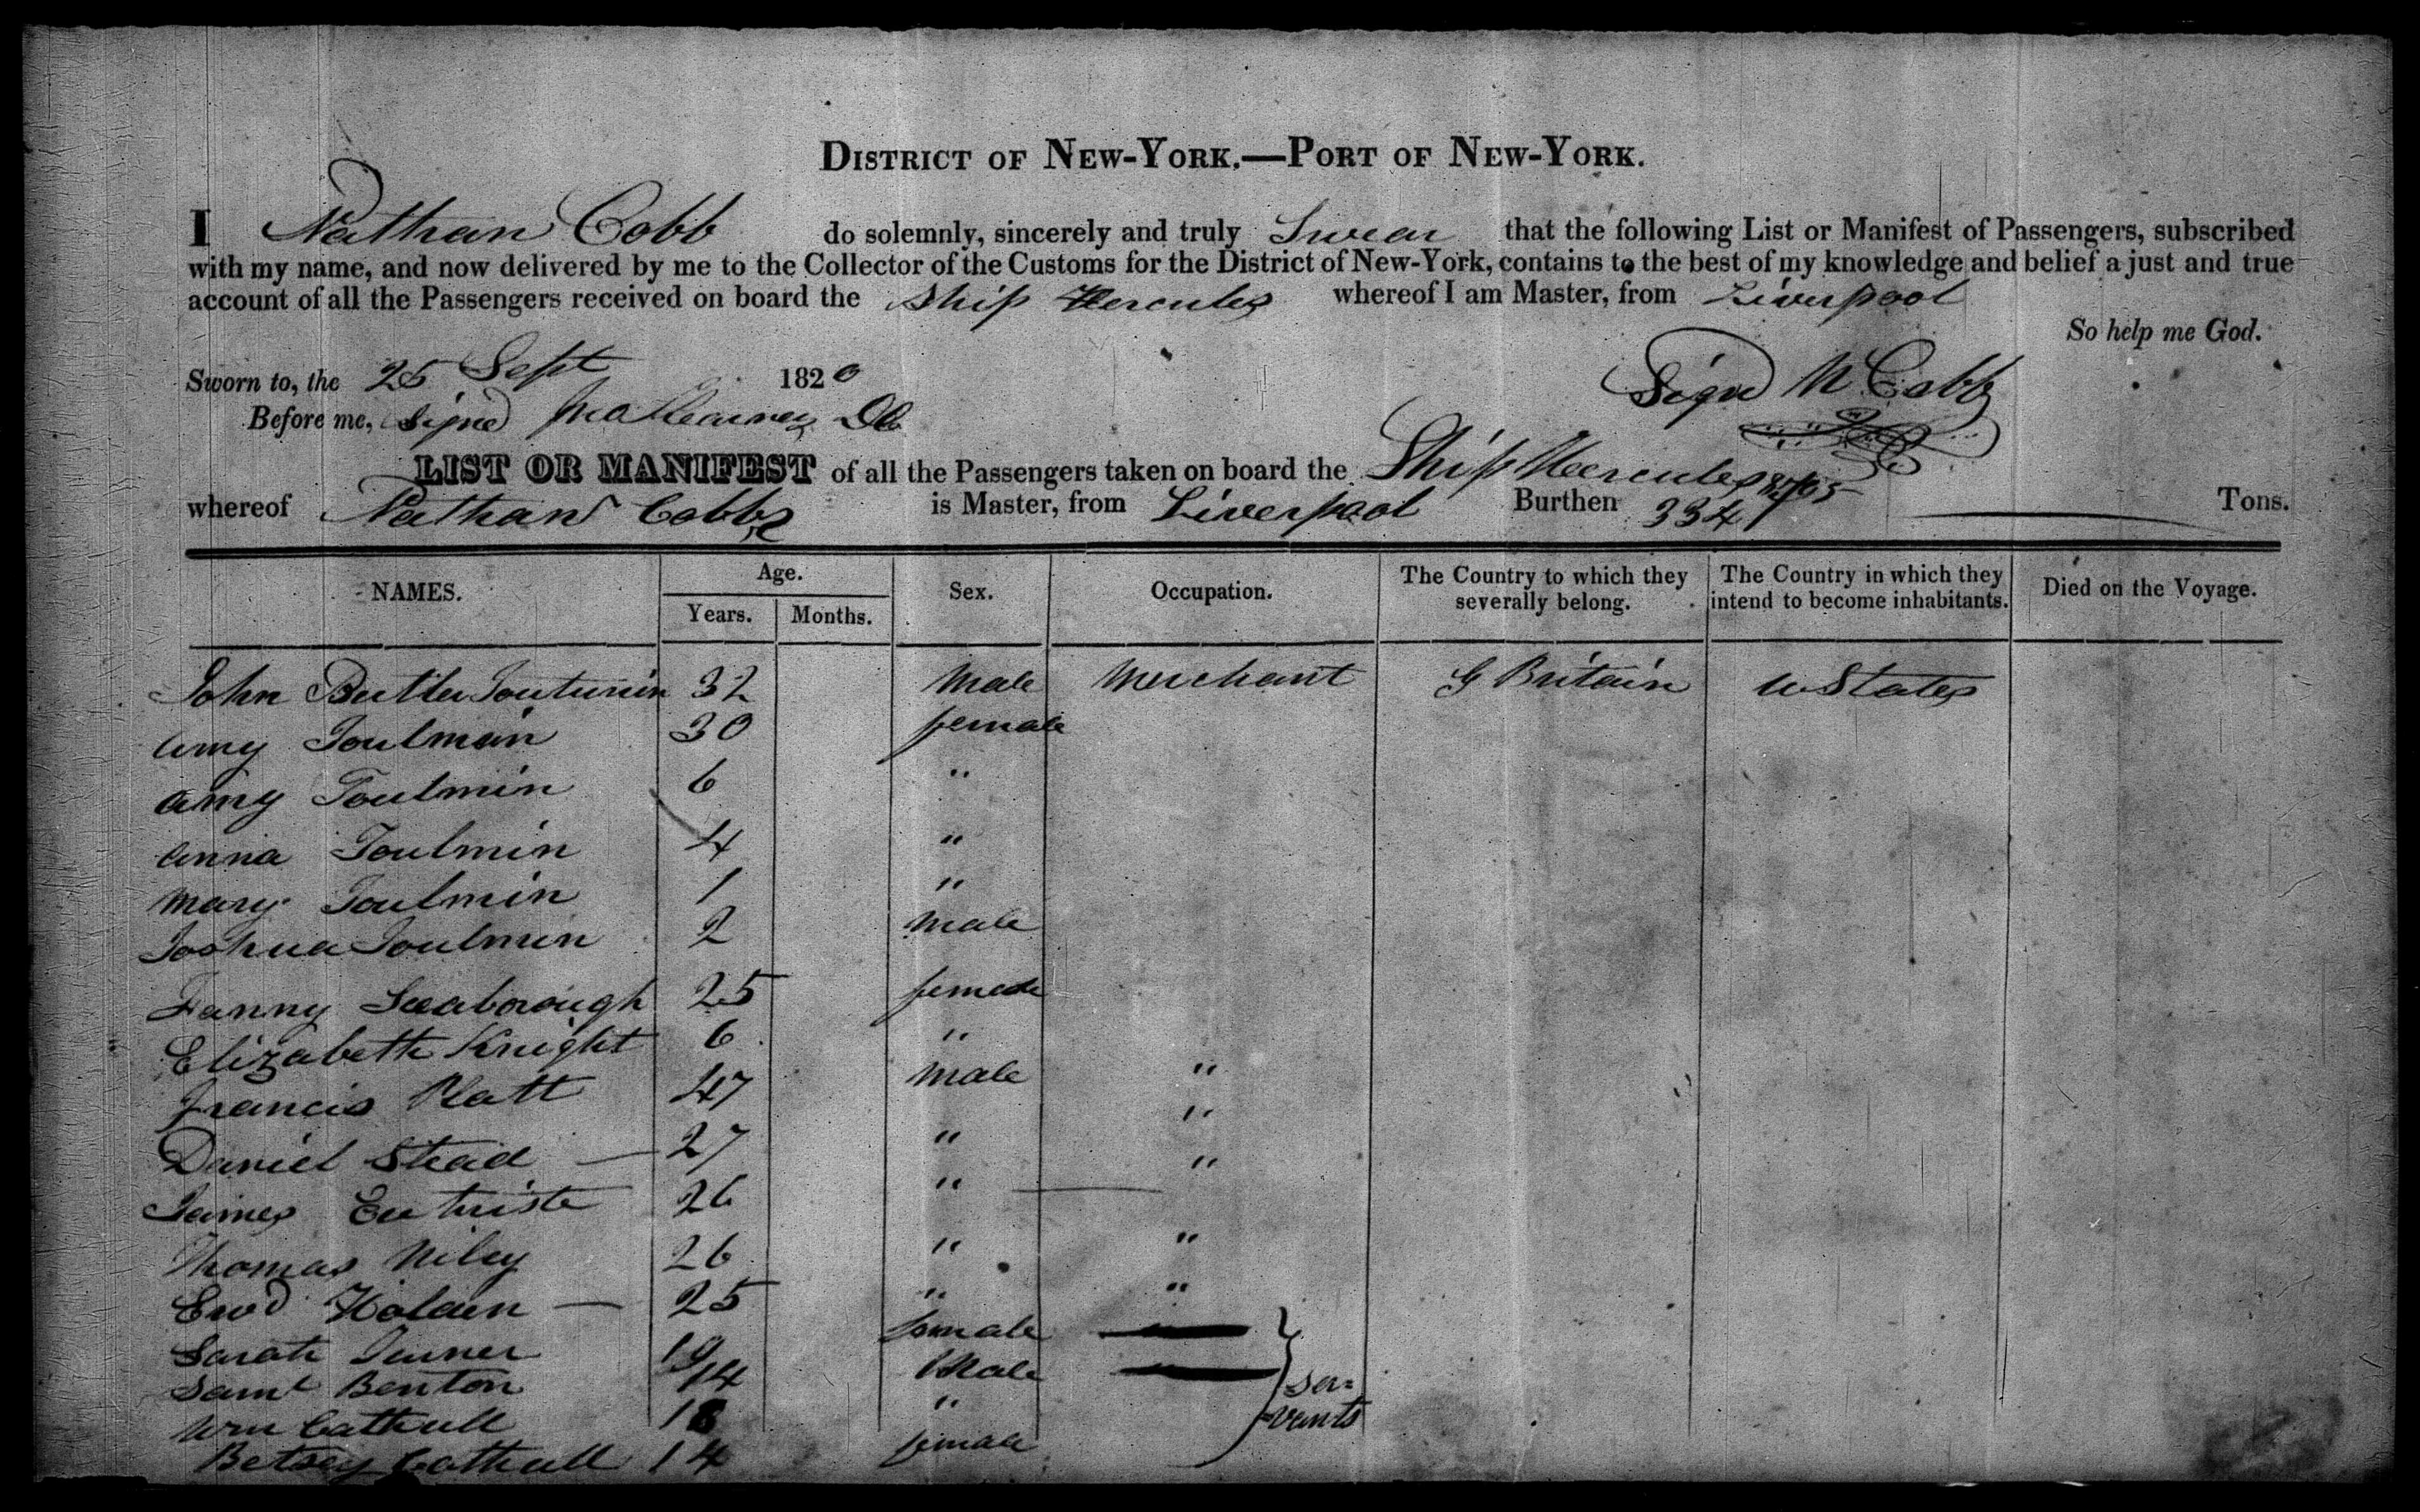 DISTRICT OF NEW-YORK.—PORT OF NEW-YORK.
I Nathan Cobb do solemnly, sincerely and truly Swear that the following List or Manifest of Passengers, subscribed
with my name, and now delivered by me to the Collector of the Customs for the District of New-York, contains to the best of my knowledge and belief a just and true
account of all the Passengers received on board the Ship Hercules whereof I am Master, from Liverpool
So help me God.
Sworn to, the 25 Sept 1820 Signd N Cobb
Before me, signd
LIST OR MANIFEST of all the Passengers taken on board the Ship Hercules
whereof Nathan Cobb is Master, from Liverpool Burthen 334 Tons.
NAMES. Age. Years. Months. Sex. Occupation. The Country to which they severally belong. The Country in which they intend to become inhabitants. Died on the Voyage.
John Butler 32 Male Merchant G Britain U States
Amy Toulmin 30 female
Amy Toulmin 6 "
Anna Toulmin 4 "
Mary Toulmin 1 "
Joshua Toulmin 2 Male
Fanny Seaborough 25 female
Elizabeth Knight 6 "
Francis Platt 47 Male "
Daniel Stead — 27 " "
James 26 " "
Thomas Niley 26 " "
Ewd Holden — 25 " "
Sarah Turner 19 female
Saml Benton 14 Male
Wm Cathull 18 "
Betsey Cathull 14 female
Ser=
=vants